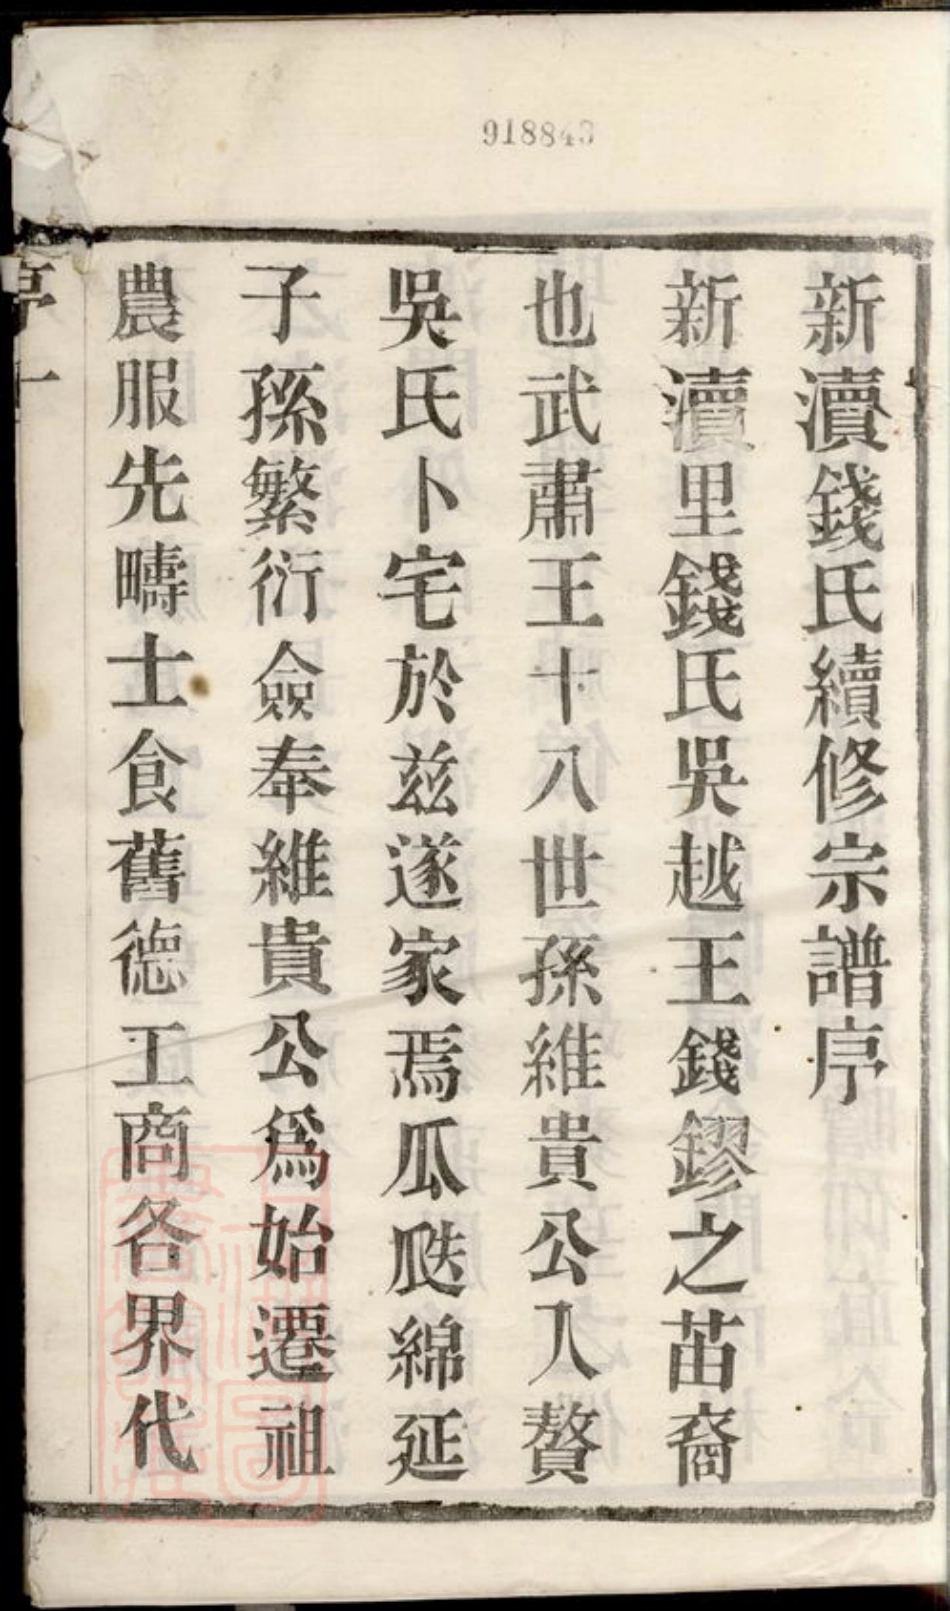 918843
新瀆錢氏續修宗譜序
新瀆里錢氏吳越王錢鏐之苗裔
也武肅王十八世孫維貴公入贅
吳氏卜宅於茲遂家焉瓜瓞綿延
子孫繁衍僉奉維貴公爲始遷祖
農服先疇士食舊德工商各界代
序一